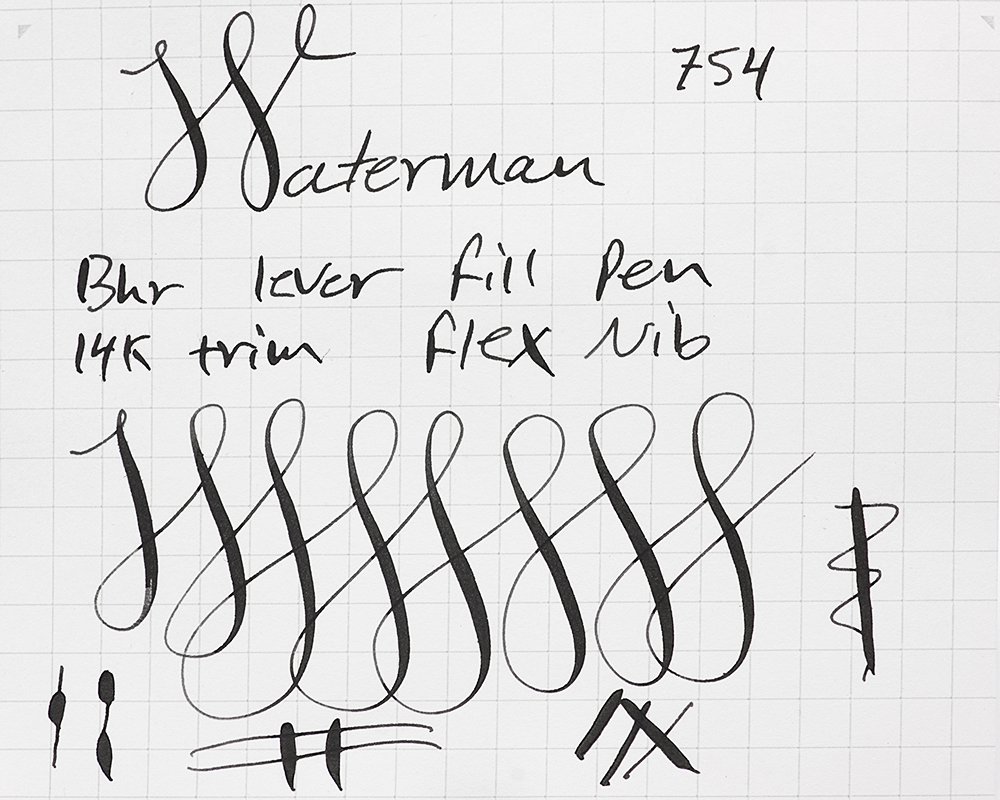 Waterman
754
Bhr lever fill Pen
14K trim flex Nib